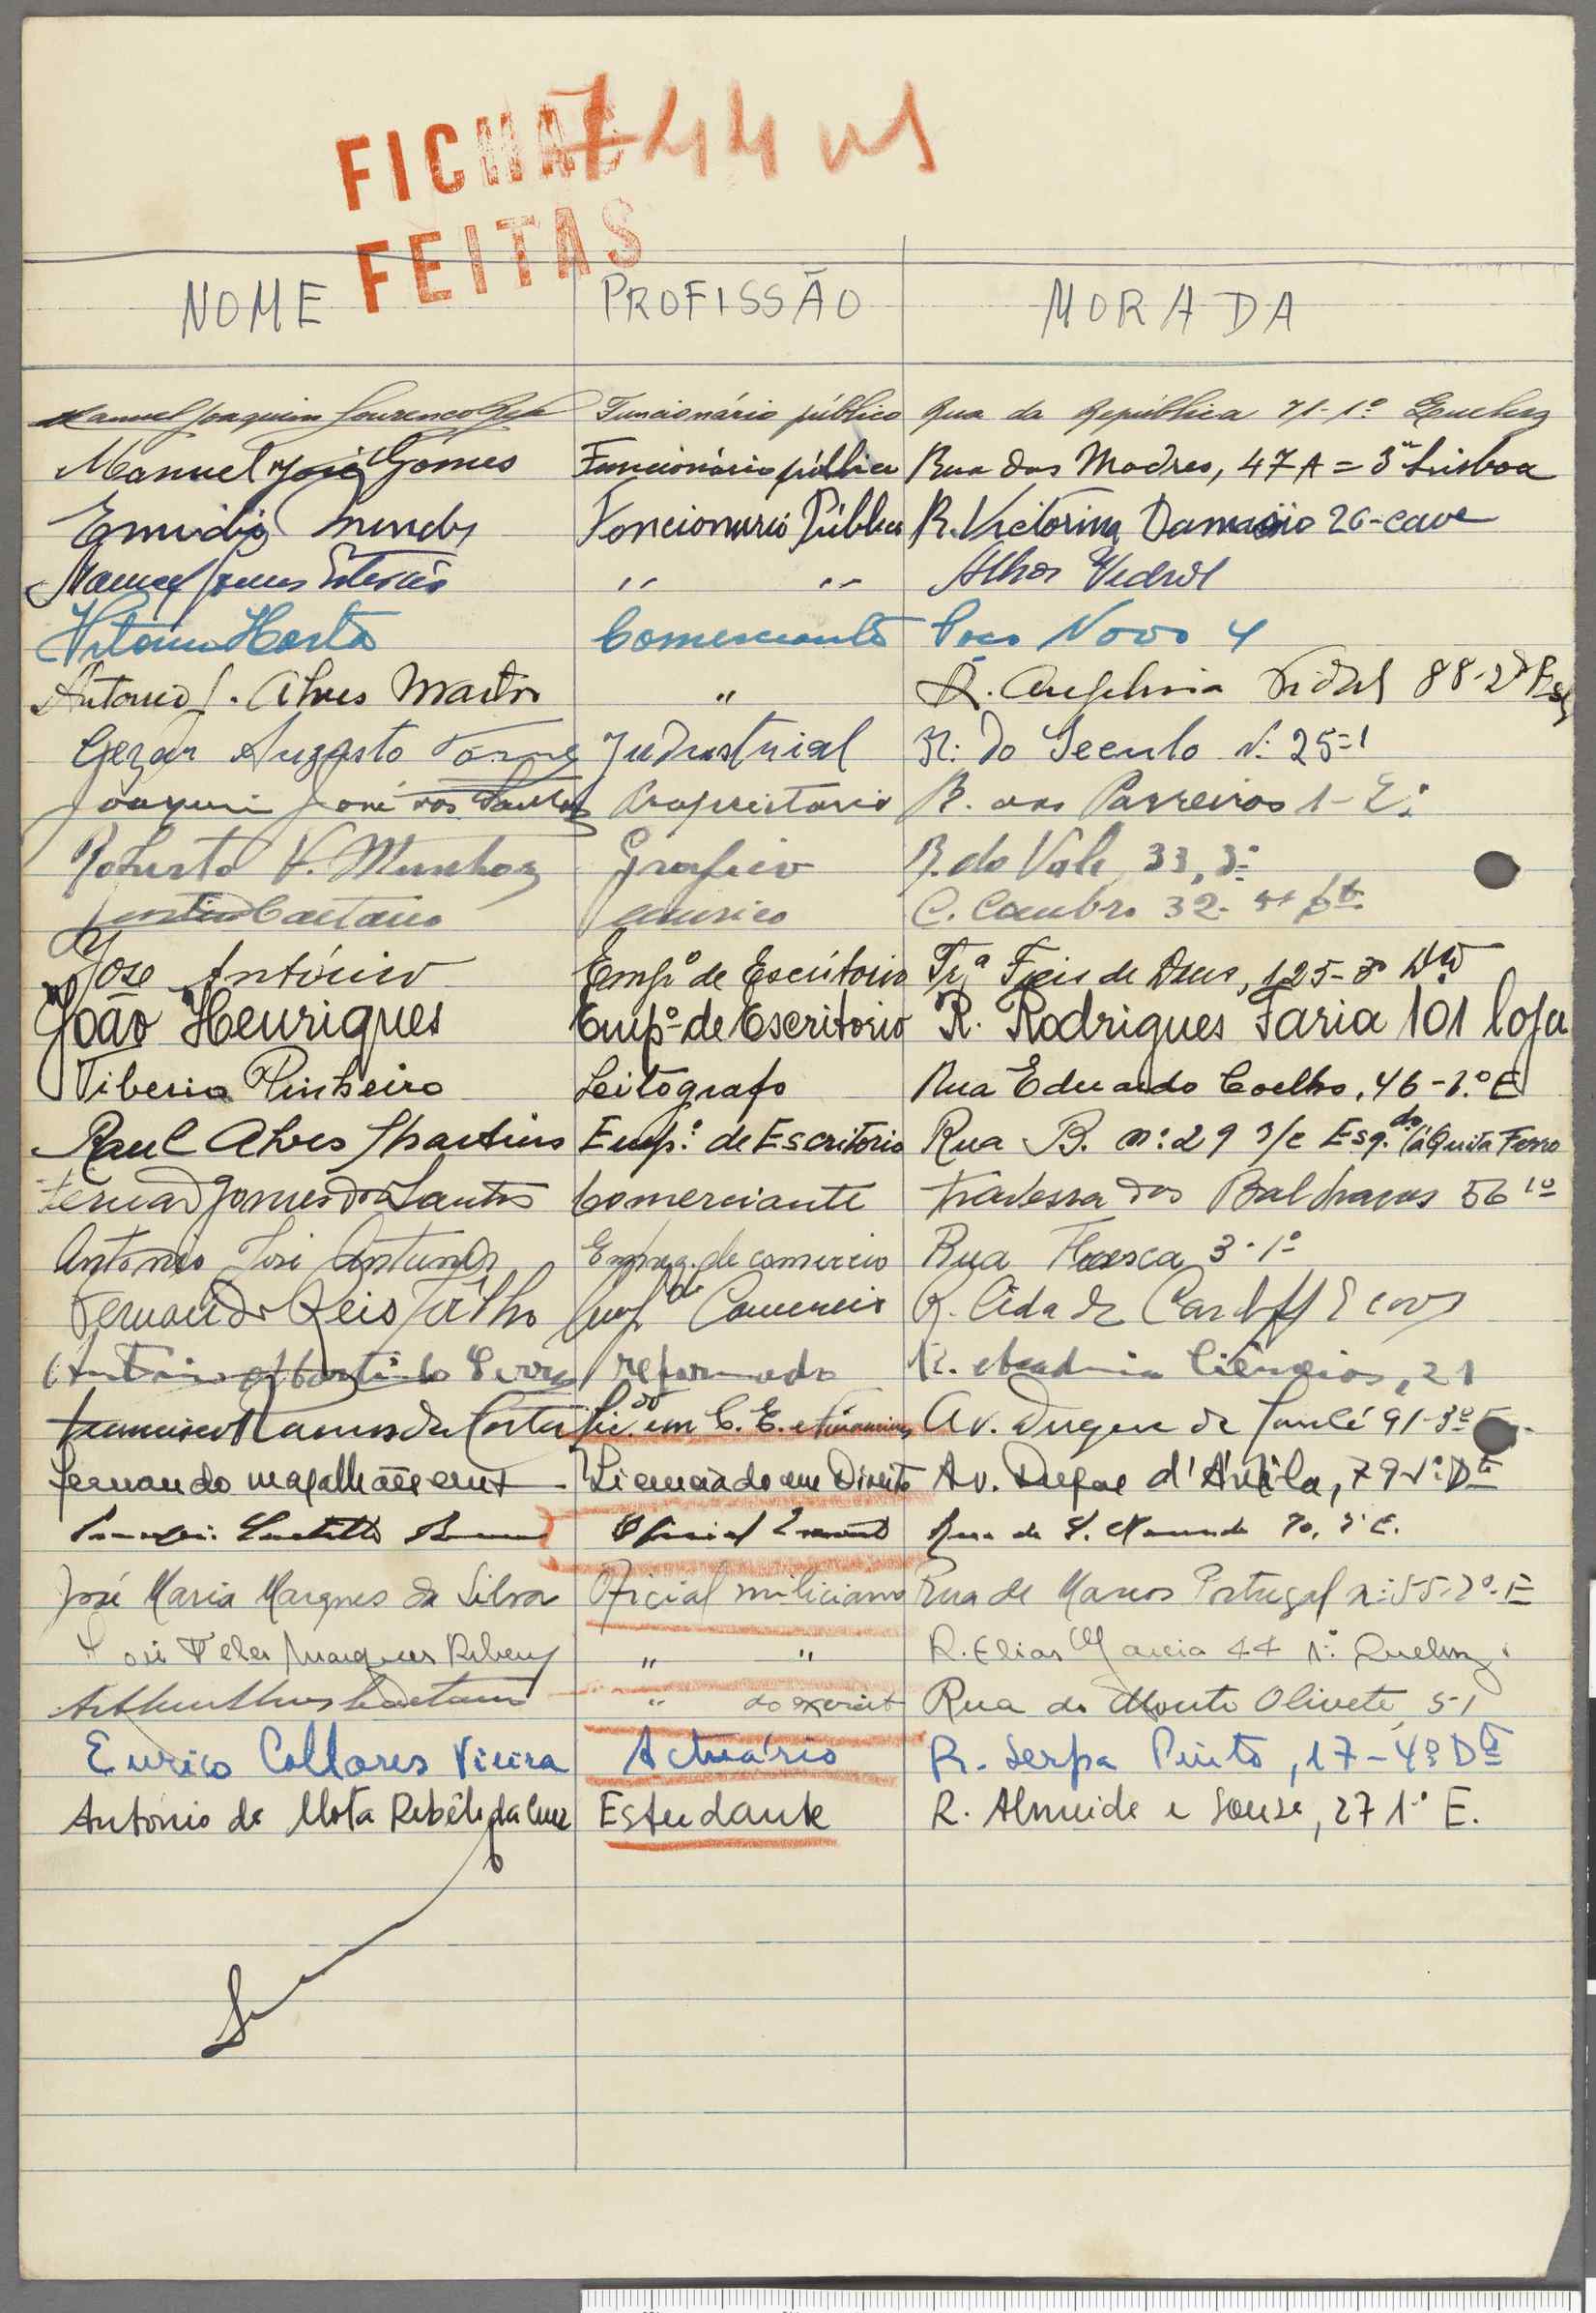 FICHAS 744
FEITAS
NOME PROFISSÃO MORADA
Manuel Joaquim Lourenço Funcionário público Rua da República 71-1º Queluz
Manuel José Gomes Funcionário público Rua das Madres, 47A = 3º Lisboa
Emidio Mendes Foncionario Público R. Victorina Damasio 26-cave
Manuel Gomes Esteves " " Alhos Vedros
Vitorino Horta Comerciante Poço Novo 4
Antonio J. Alves Martins " R. Angelina Vidal 88-2º
Cezar Augusto Industrial R. do Seculo N: 25=1
Joaquim José dos Santos Proprietario R. 1-2º
Roberto V. Munhoz Grafico R. do Vale, 33, 3º
Caetano C. Combro 32-
José António Empº de Escritorio Trª Fieis de Deus, 125-3º Dtº
João Henriques Empº de Escritorio R. Rodrigues Faria 101 loja
Tiberio Pinheiro Leitografo Rua Eduardo Coelho, 46-2.º E
Raul Alves Martins Emp.º de Escritório Rua B. nº: 29 Esq. do
Gomes dos Santos Comerciante Travessa dos 56 1º
Antonio José Antunes Empreg. de comercio Rua 3-1º
Fernando Reis Filho Comercio R. Cidade Cardiff
Serra reformado R. Academia Ciências, 21
Francisco Ramos da Costa Lic.do em C. E. e Financeiras Av. Duque de Loulé 91-3º
Fernando Magalhães Licenciado em Direito Av. Duque d'Ávila, 79 1º Dtº
Oficial Rua de S. 70, E.
José Maria Marques da Silva Oficial miliciano Rua de Marcos Portugal nº: 55-2º-E
José Teles Marques " " R. Elias Garcia 44 1º Queluz.
Caetano " do exercito Rua do Monte Olivete, 51
Eurico Collares Vieira Actuário R. Serpa Pinto, 17-4º Dtº
António da Mota Estudante R. Almeida e Sousa, 27 1º E.